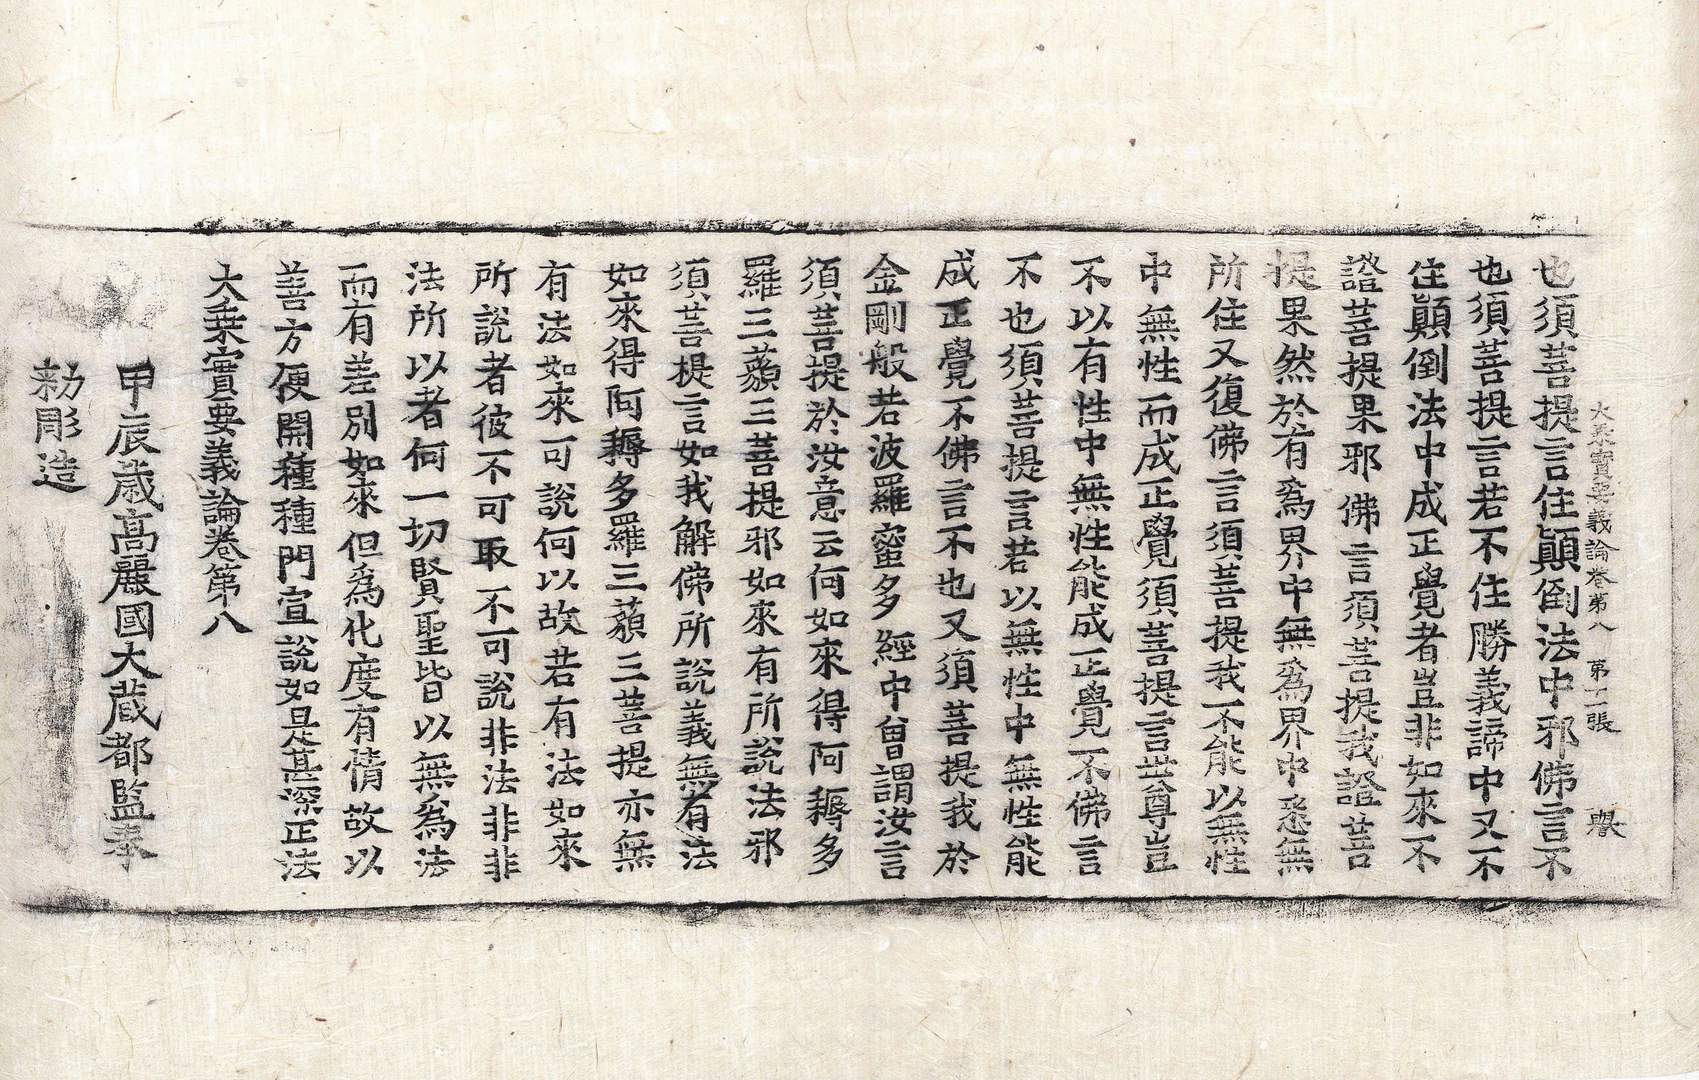 大乗寳要義論卷第八 第十二張 㒜
也須菩提言住顚倒法中邪佛言不
也須菩提言若不住勝義諦中又不
住顚倒法中成正覺者豈非如來不
證菩提果邪佛言須菩提我證菩
提果然於有爲界中無爲界中悉無
所住又復佛言須菩提我不能以無性
中無性而成正覺須菩提言世尊豈
不以有性中無性能成正覺不佛言
不也須菩提言若以無性中無性能
成正覺不佛言不也又須菩提我於
金剛般若波羅蜜多經中曾謂汝言
須菩提於汝意云何如來得阿耨多
羅三藐三菩提邪如來有所說法邪
須菩提言如我解佛所說義無有法
如來得阿耨多羅三藐三菩提亦無
有法如來可說何以故若有法如來
所說者彼不可取不可說非法非非
法所以者何一切賢聖皆以無爲法
而有差別如來但爲化度有情故以
善方便開種種門宣說如是甚深正法
大乗寳要義論卷第八
甲辰歲高麗國大藏都監奉
勅彫造